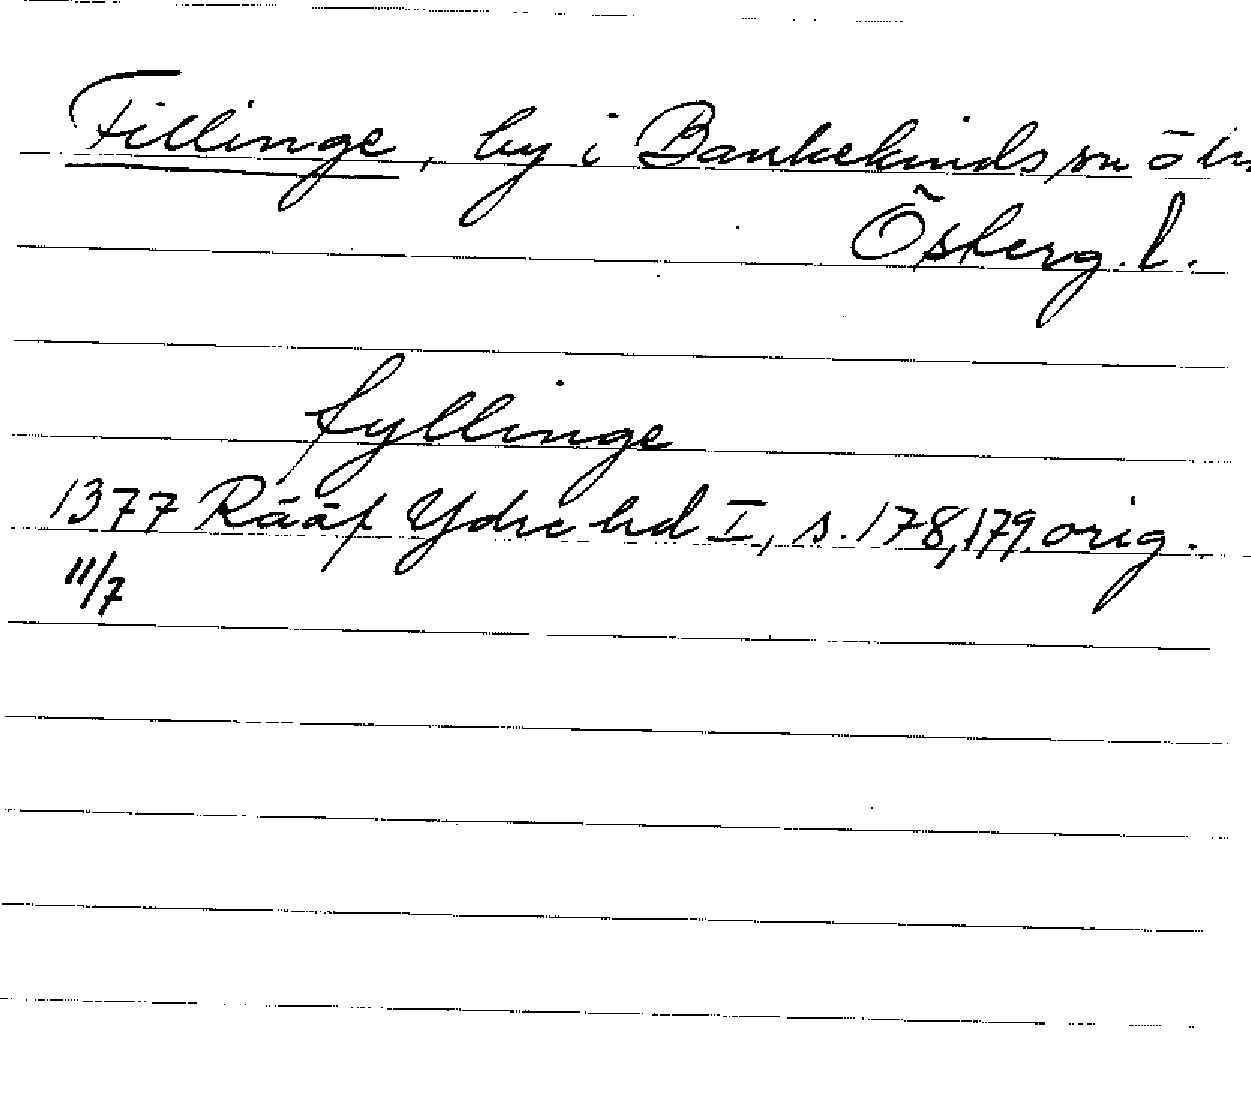 Fillinge, by i Bankekinds sn
Österg. l.
fyllinge
1377 Rääf Ydre hd I, s. 178, 179. orig.
11/7